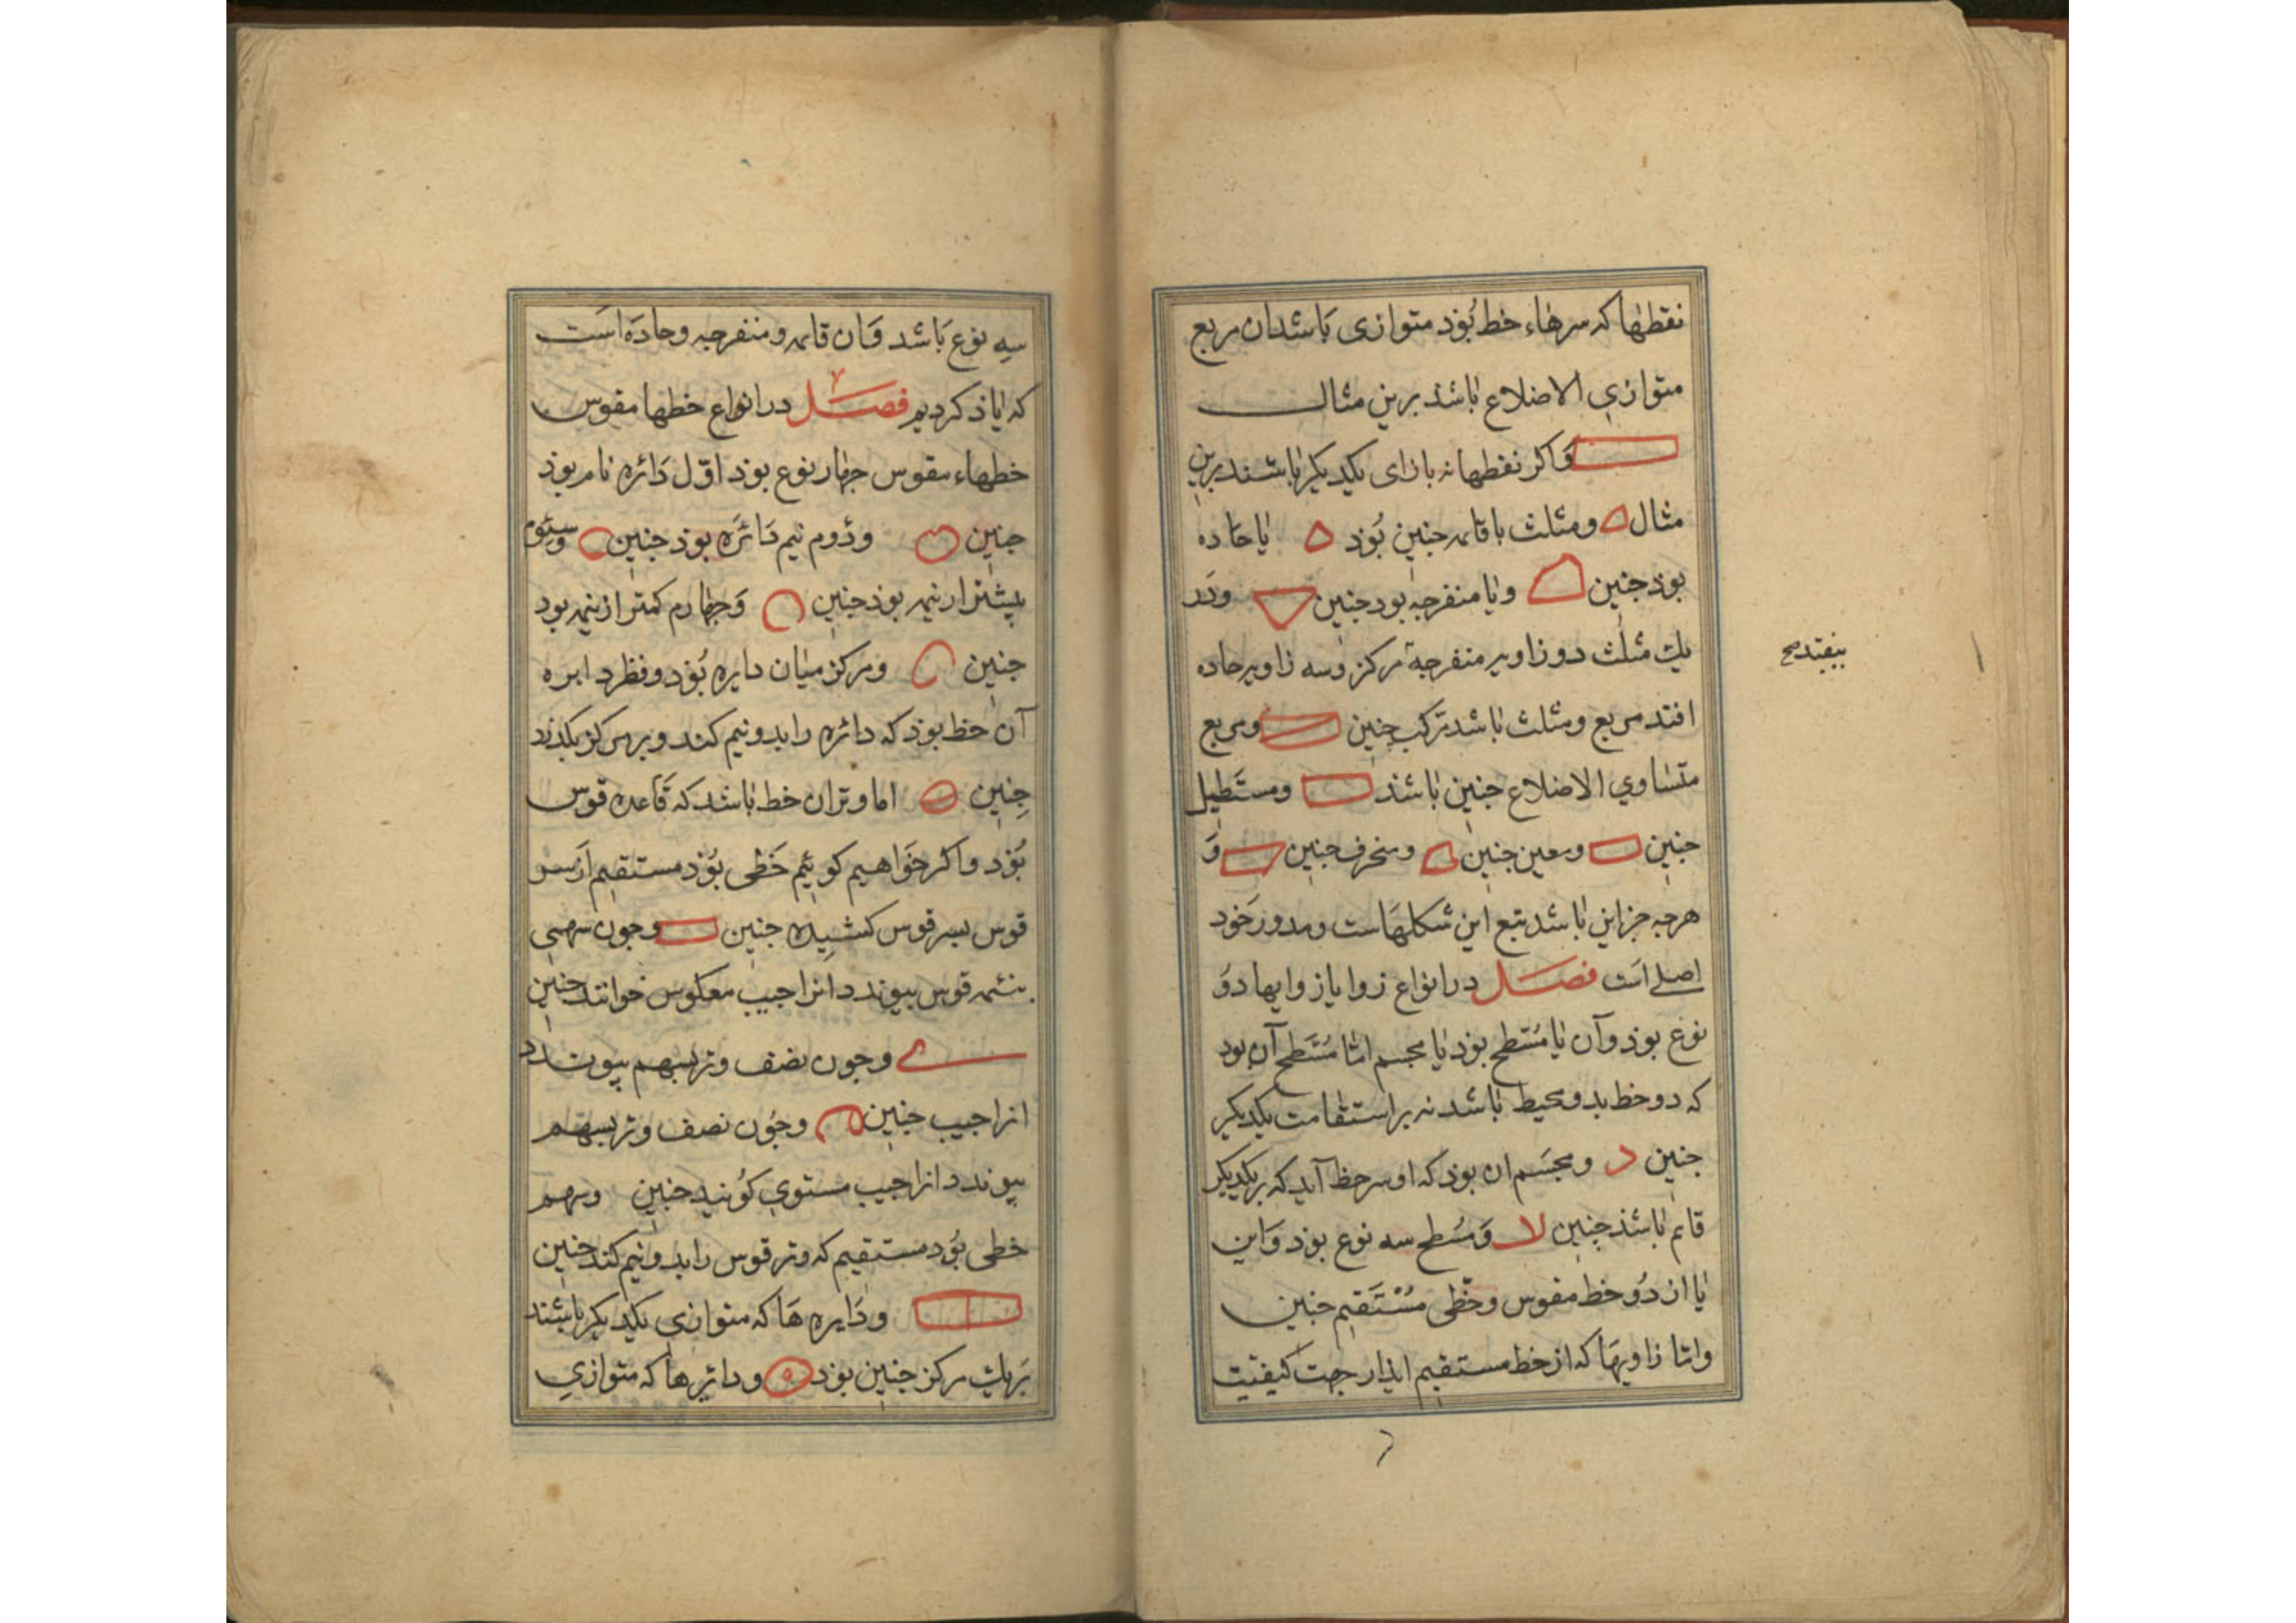 نقطها که سرهاء خط بُوذ متوازی بَاشدان مربع
متوازیِ الاضلاع باشذ برین مثال
وَاکر نقطها نه بازای یکدیکر باشند برین
مثال ومثلث باقایمه جنین بُوذ یا حَاده
بوذ جنین ویا منفرجه بود جنین ودَر
یك مثلث دو زاویه منفرجه مرکز وسه زاویه حاده
بیفتد صح
افتد مربع ومثلث باشد ترکب جنین ومربع
متساوی الاضلاع جنین باشذ ومستَطیل
جنین ومعین جنین ومنحرف جنین وَ
هرجه جز این باشد تبع این شکلهَاست ومدور خَود
اصلے است فصل در انواع زوایا زوایها دوُ
نوع بوذ وآن یا مُسَطح بوذ یا مجسم امّا مُسَطح آن بود
که دو خط بدو محیط باشد نه بر استقامت یکدیکر
جنین د ومجسَم ان بوذ که او سر خط آید که بر یکدیکر
قایم باشذ جنین لا وَمسُطح سه نوع بوذ وَاین
یا از دُو خط مقوس وخطّی مُسْتَقیم جنین
وامّا زاویهَا که از خط مستقیم ایذ از جهت کیفیّت
سه نوع بَاشد وَان قایمه ومنفرجه وحادَه است
که یاذ کردیم فصل در انواع خطها مقوس
خطهاء مقوس جهار نوع بوذ اوّل دَائره نام بوذ
جنین ودُوم نیم دَائَرَه بوذ جنین وسیّوم
بیشتر از نیمه بوذ جنین وَجهارم کمتر از نیمه بود
جنین ومرکز میان دایره بُوَذ وقطر دایره
آن خط بوذ که دائره را بدو نیم کند وبر مرکز بکذرد
جنین اما وتران خط باشد که قَاعده قوس
بُوَذ واکر خوَاهیم کوئیم خَطی بوُذ مستقیم ازَ سر
قوس بسر قوس کشیده جنین وجون سهمی
بنیمه قوس بیوندد انرا جیب معکوس خوانند جنین
وجون نصف وتر بسهم بیوندد
انرا جیب جنین وجُون نصف وتر بسهم
بیوندد انرا جیب مستوی کوُیند جنین وسهم
خطی بوُد مستقیم که وتر قوس را بدو نیم کند جنین
ودَایره هَا که متوازی یکدیکر باشند
بَر یك مرکز جنین بوَذ ودایرها که متوازیِ